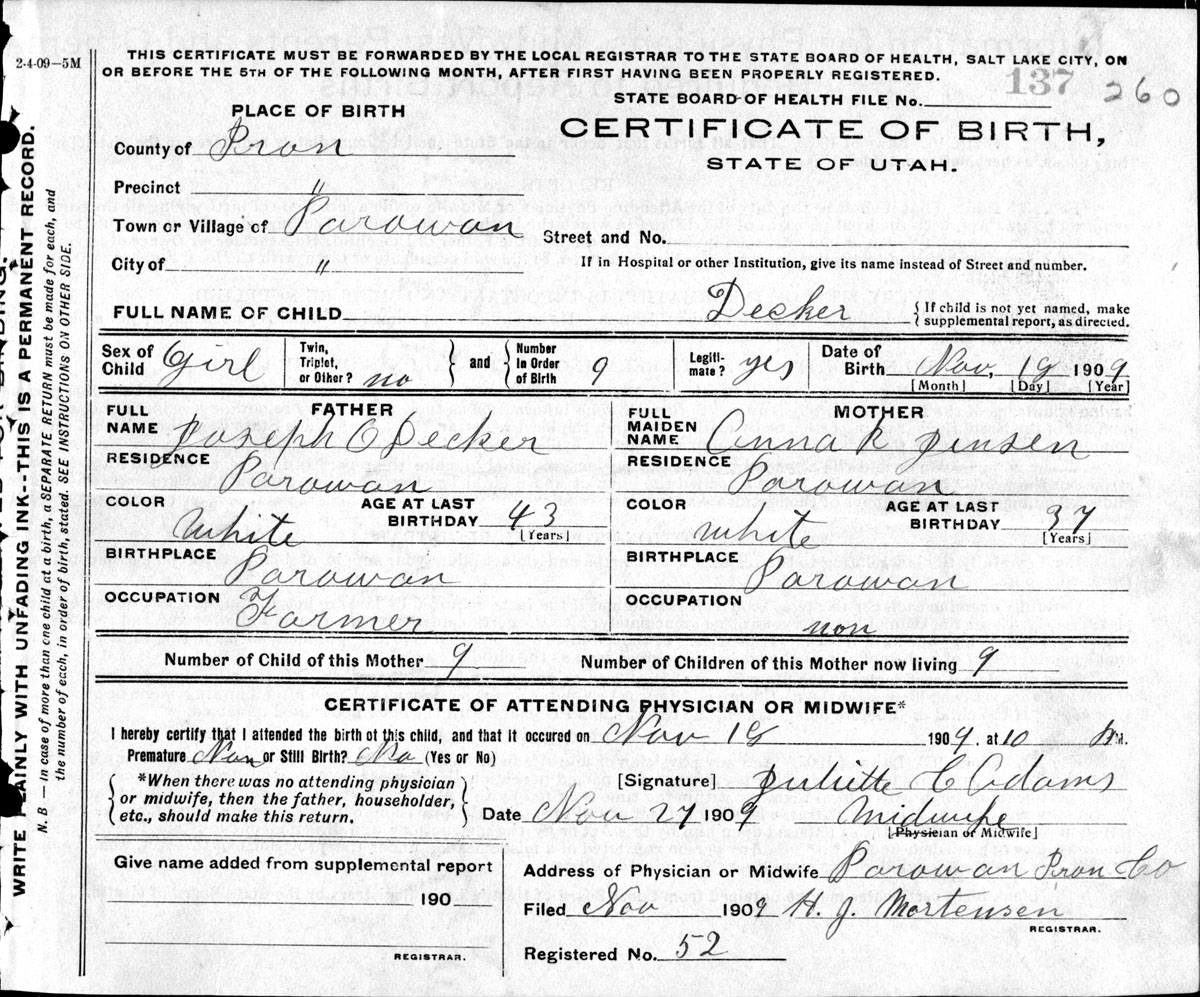 2-4-09—5M
THIS CERTIFICATE MUST BE FORWARDED BY THE LOCAL REGISTRAR TO THE STATE BOARD OF HEALTH, SALT LAKE CITY, ON
OR BEFORE THE 5TH OF THE FOLLOWING MONTH, AFTER FIRST HAVING BEEN PROPERLY REGISTERED.
137 260
STATE BOARD OF HEALTH FILE No.
PLACE OF BIRTH
CERTIFICATE OF BIRTH,
STATE OF UTAH.
County of Iron
Precinct "
Town or Village of Parowan
Street and No.
City of "
If in Hospital or other Institution, give its name instead of Street and number.
FULL NAME OF CHILD Decker { If child is not yet named, make supplemental report, as directed.
Sex of Child Girl Twin, Triplet, or Other? no } and { Number in Order of Birth 9 Legiti-mate? yes Date of Birth Nov, 19 1909
[Month] [Day] [Year]
FATHER
FULL NAME Joseph O Decker
RESIDENCE Parowan
COLOR White AGE AT LAST BIRTHDAY 43 [Years]
BIRTHPLACE Parowan
OCCUPATION Farmer
MOTHER
FULL MAIDEN NAME Anna R Jensen
RESIDENCE Parowan
COLOR White AGE AT LAST BIRTHDAY 37 [Years]
BIRTHPLACE Parowan
OCCUPATION non
Number of Child of this Mother 9 Number of Children of this Mother now living 9
CERTIFICATE OF ATTENDING PHYSICIAN OR MIDWIFE*
I hereby certify that I attended the birth of this child, and that it occured on Nov 19 1909. at 10 M.
Premature Non or Still Birth? No (Yes or No)
{ *When there was no attending physician or midwife, then the father, householder, etc., should make this return. }
[Signature] Juliette C Adams
Date Nov 27 1909 Midwife
[Physician or Midwife]
Give name added from supplemental report
190
REGISTRAR.
Address of Physician or Midwife Parowan Iron Co
Filed Nov 1909 H. J. Mortensen
REGISTRAR.
Registered No. 52
WRITE PLAINLY WITH UNFADING INK--THIS IS A PERMANENT RECORD.
N. B.—in case of more than one child at a birth, a SEPARATE RETURN must be made for each, and
the number of each, in order of birth, stated. SEE INSTRUCTIONS ON OTHER SIDE.